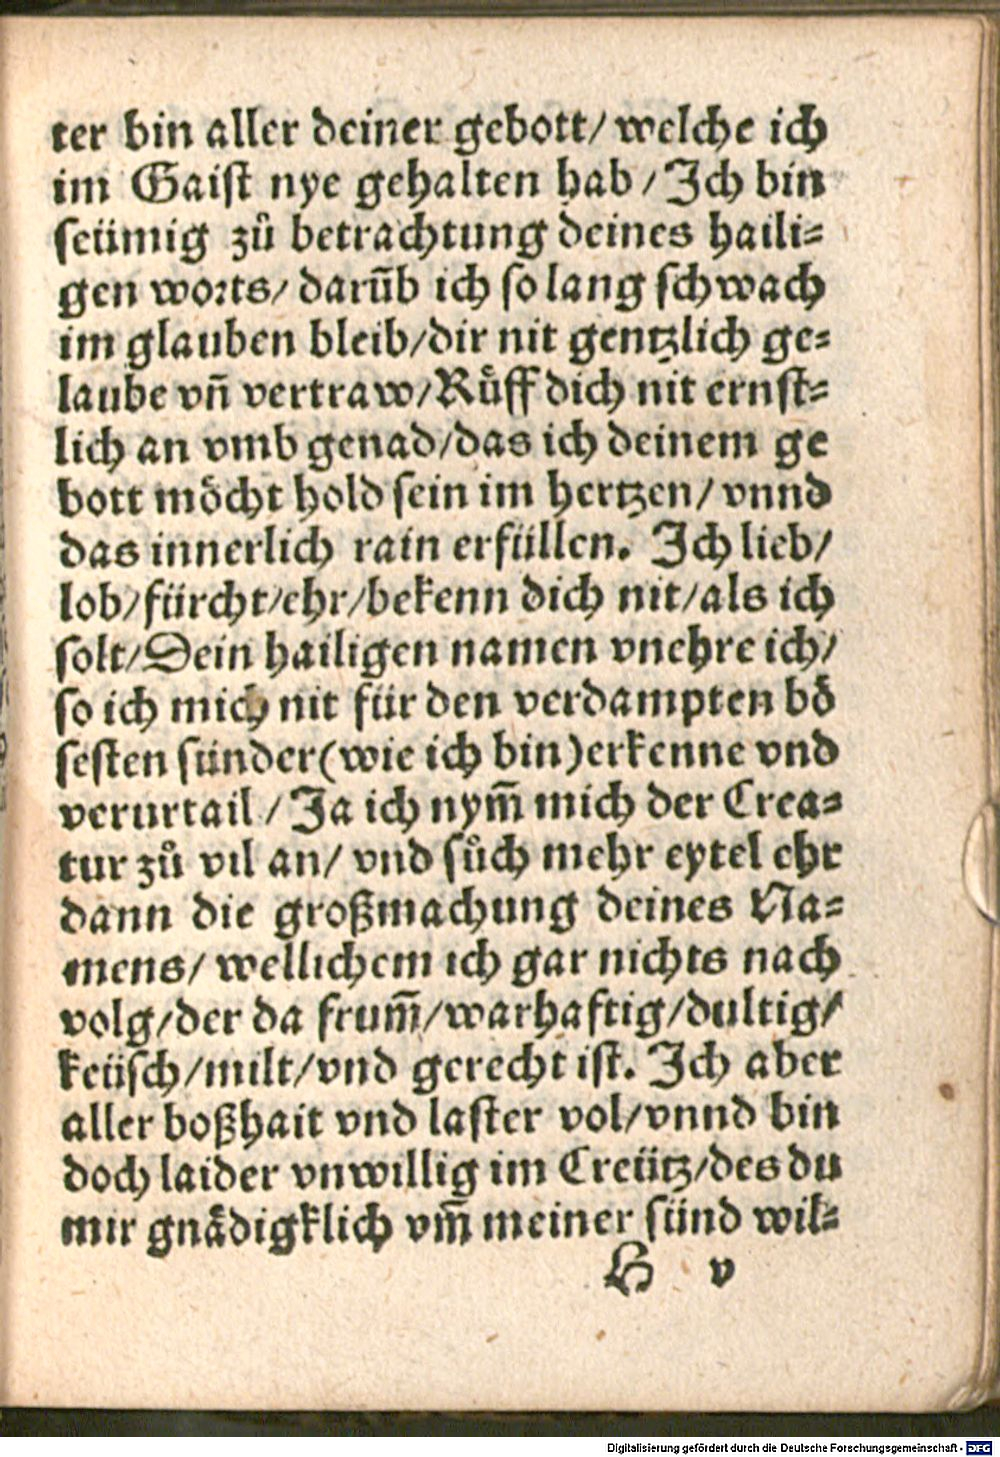 ter bin aller deiner gebott/ welche ich
im Gaist nye gehalten hab / Ich bin
seümig zů betrachtung deines haili=
gen worts/ darũb ich so lang schwach
im glauben bleib/dir nit gentzlich ge=
laube vñ vertraw/Růff dich nit ernst=
lich an vmb genad/das ich deinem ge
bott möcht hold sein im hertzen/ vnnd
das innerlich rain erfüllen. Ich lieb/
lob/fürcht/ehr/bekenn dich nit/als ich
solt/Dein hailigen namen vnehre ich/
so ich mich nit für den verdampten bö
sesten sünder(wie ich bin)erkenne vnd
verurtail / Ja ich nym̃ mich der Crea=
tur zů vil an/ vnd sůch mehr eytel ehr
dann die großmachung deines Na=
mens/ wellichem ich gar nichts nach
volg/der da frum̃/warhaftig/dultig/
keüsch/milt/vnd gerecht ist. Ich aber
aller boßhait vnd laster vol/vnnd bin
doch laider vnwillig im Creütz/des du
mir gnädigklich vm̃ meiner sünd wil=
H v
Digitalisierung gefördert durch die Deutsche Forschungsgemeinschaft - DFG